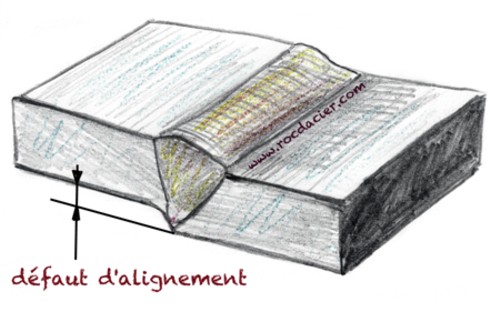 www.rocdacier.com
défaut d'alignement